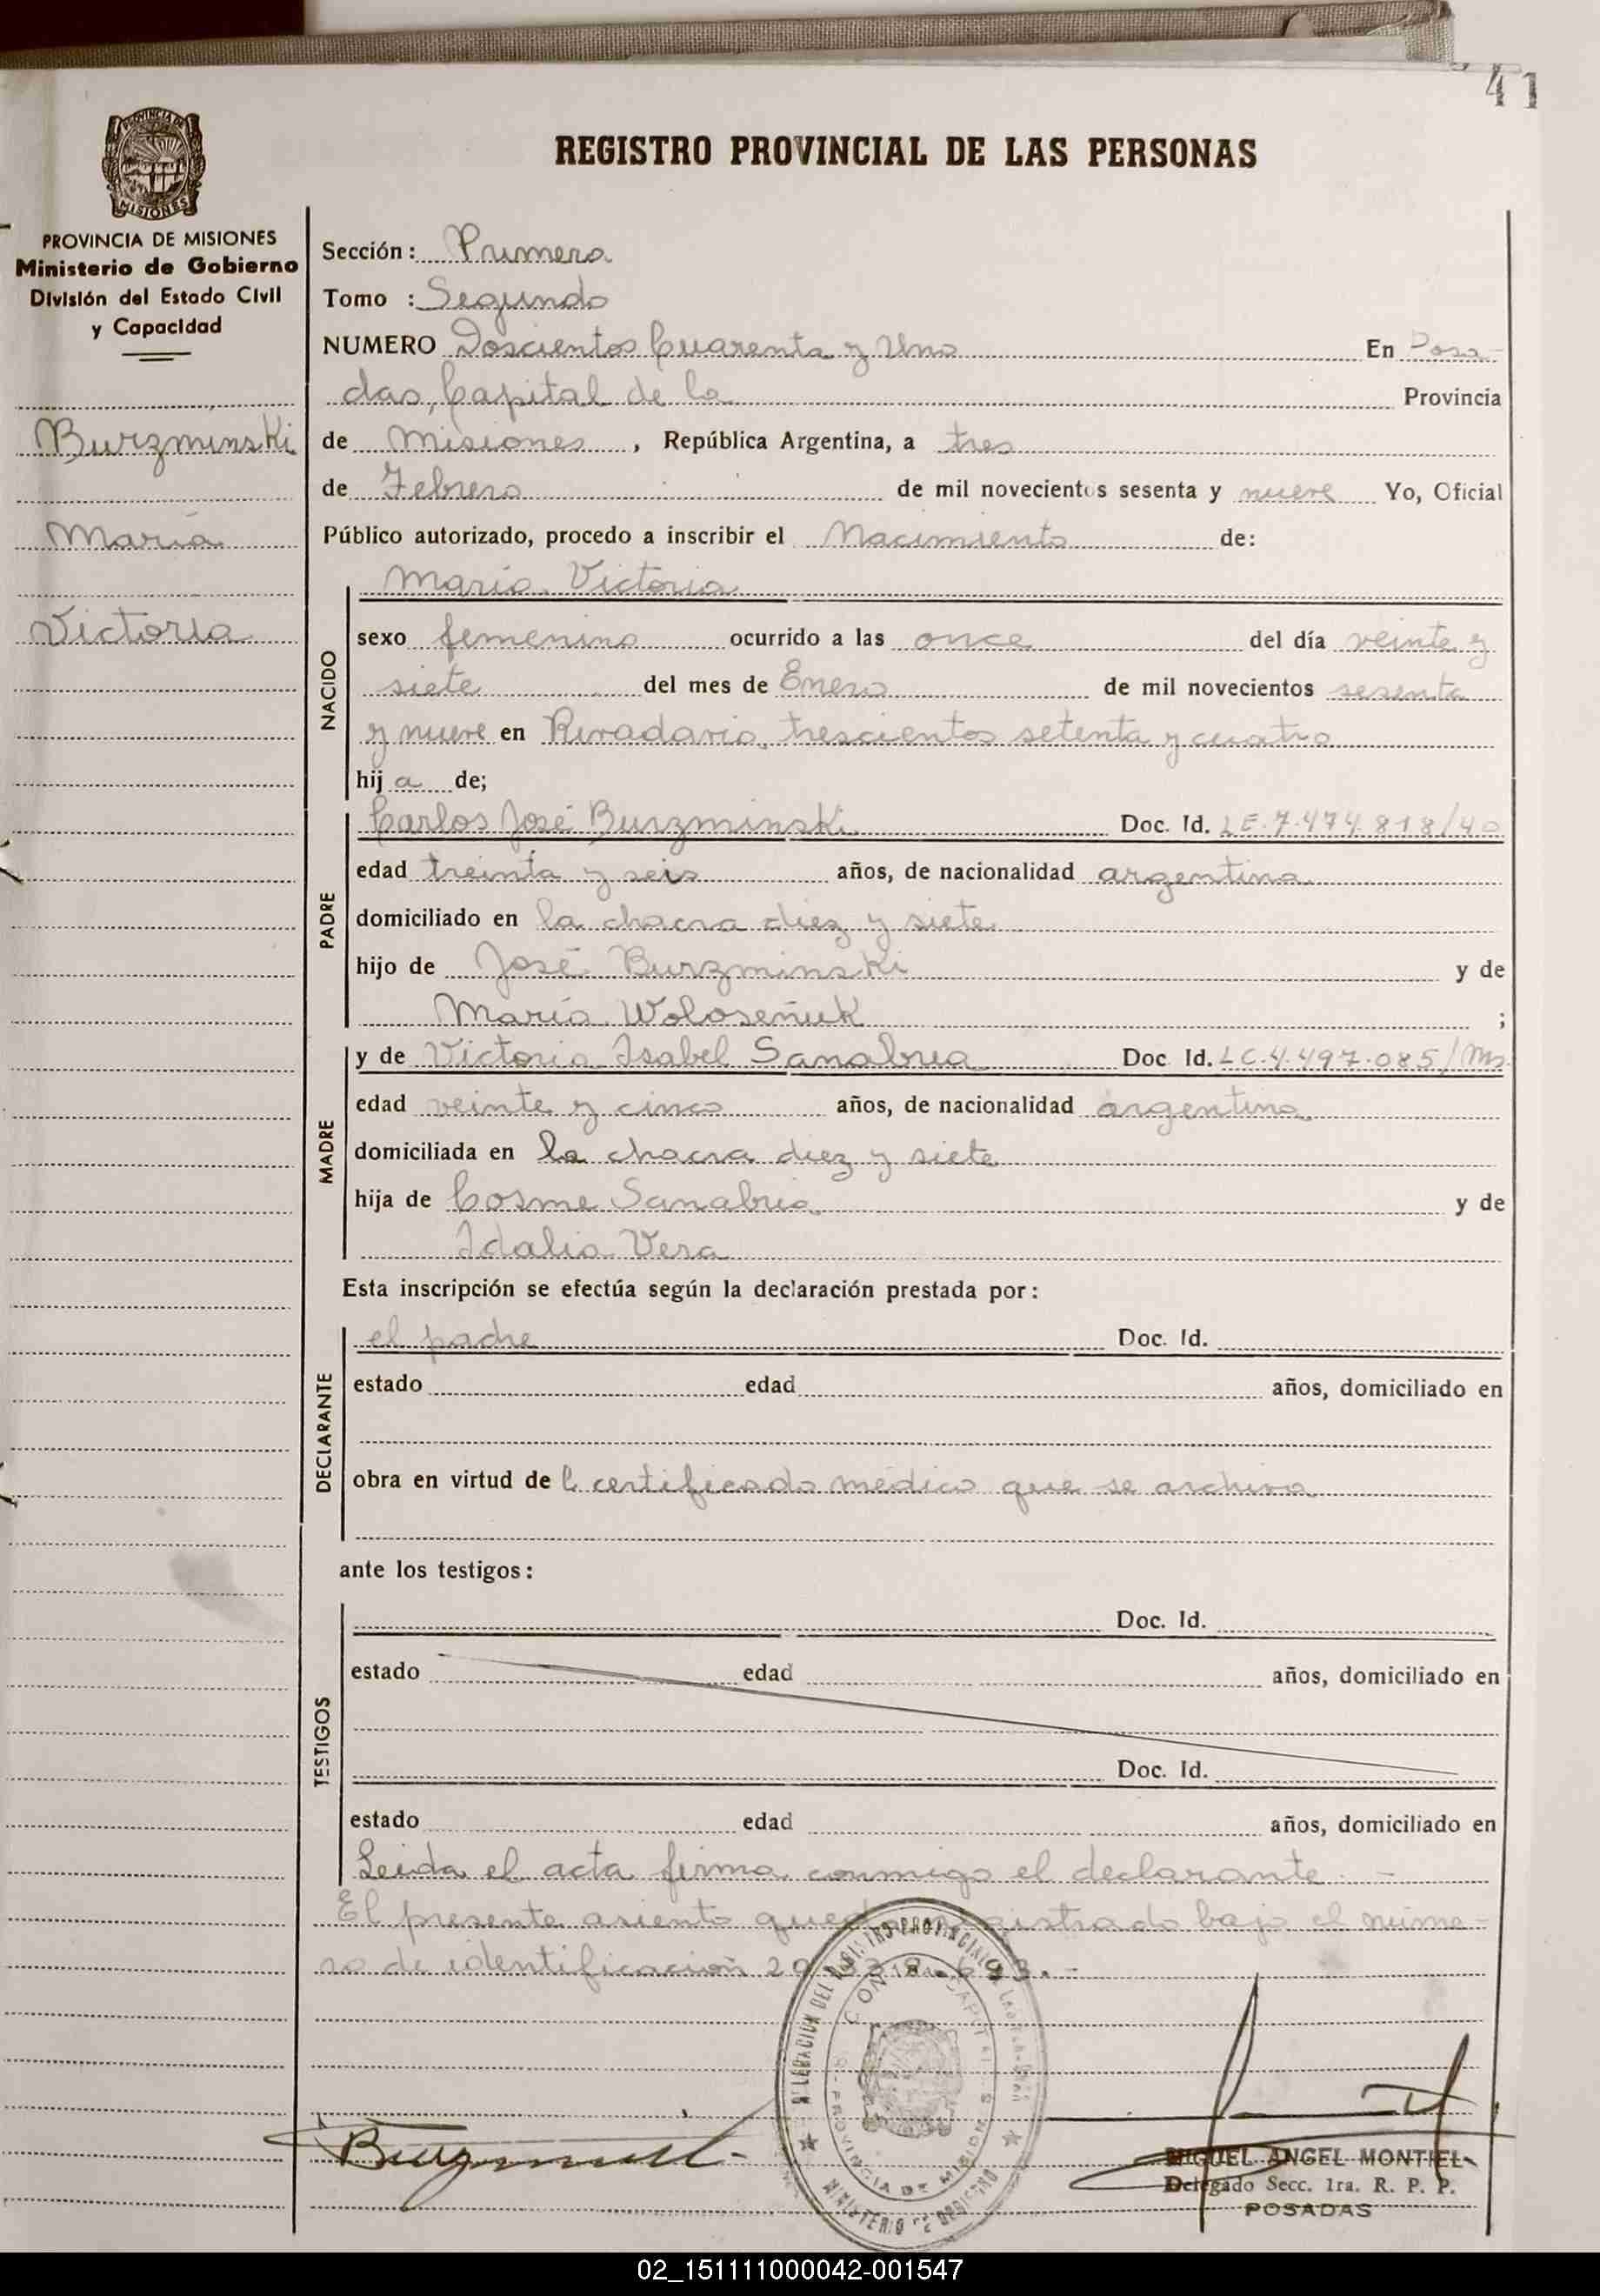 41
REGISTRO PROVINCIAL DE LAS PERSONAS
PROVINCIA DE MISIONES
Ministerio de Gobierno
División del Estado Civil
y Capacidad
Burzminski
María
Victoria
Sección: Primera
Tomo : Segundo
NUMERO Doscientos Cuarenta y Uno En Posa-
das, Capital de la Provincia
de Misiones, República Argentina, a tres
de Febrero de mil novecientos sesenta y nueve Yo, Oficial
Público autorizado, procedo a inscribir el Nacimiento de:
María Victoria
NACIDO
sexo femenino ocurrido a las once del día veinte y
siete del mes de Enero de mil novecientos sesenta
y nueve en Rivadavia trescientos setenta y cuatro
hija de;
Carlos José Burzminski Doc. Id. LE.7.474.818/40
PADRE
edad treinta y seis años, de nacionalidad argentina
domiciliado en la chacra diez y siete
hijo de José Burzminski y de
María Woloseñuk ;
y de Victoria Isabel Sanabria Doc Id. LC.4.497.085/Ms
MADRE
edad veinte y cinco años, de nacionalidad argentina
domiciliada en la chacra diez y siete
hija de Cosme Sanabria y de
Idalia Vera
Esta inscripción se efectúa según la declaración prestada por:
el padre Doc. Id.
DECLARANTE
estado edad años, domiciliado en
obra en virtud de l certificado médico que se archiva
ante los testigos:
Doc. Id.
TESTIGOS
estado edad años, domiciliado en
Doc. Id.
estado edad años, domiciliado en
Leida el acta firma conmigo el declarante -
El presente asiento queda registrado bajo el núme-
ro de identificación
MINISTERIO DE GOBIERNO
PROVINCIA DE MISIONES
Burzminski
MIGUEL ANGEL MONTIEL
Delegado Secc. 1ra. R. P. P.
POSADAS
02_151111000042-001547